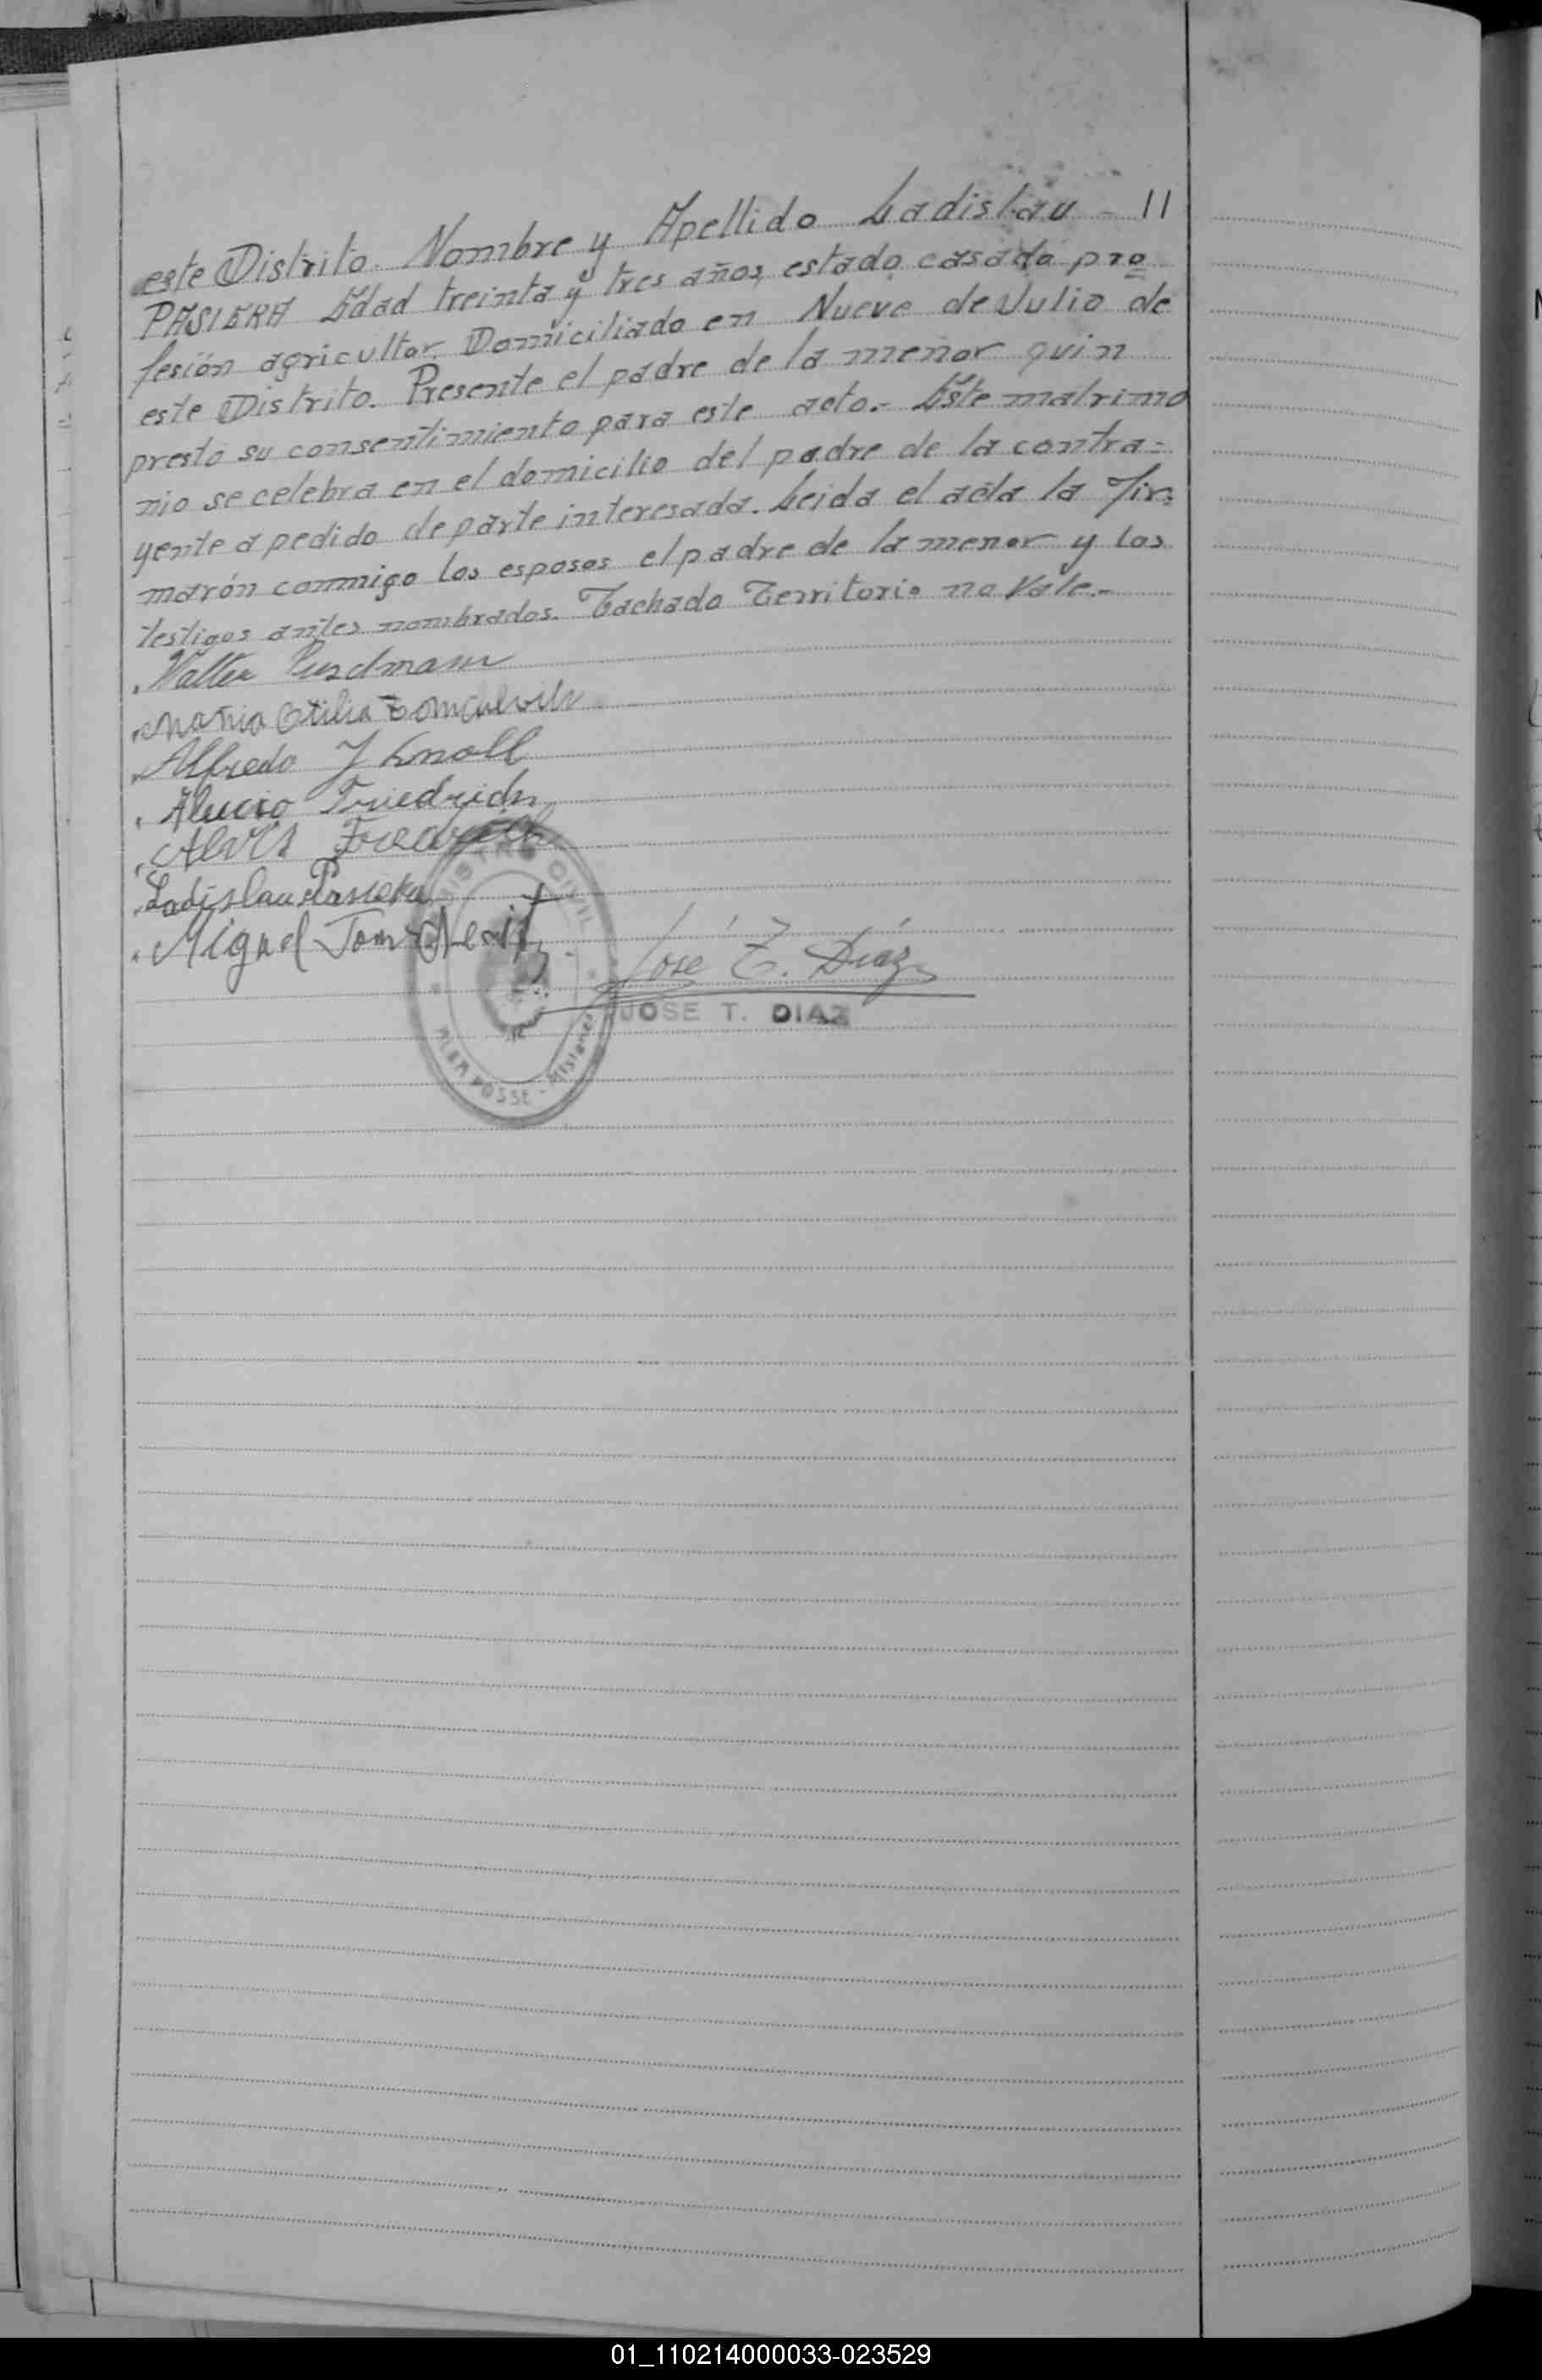 este Distrito. Nombre y Apellido Ladislau - 11
PASIERA Edad treinta y tres años, estado casado pro
fesión agricultor. Domiciliado en Nueve de Julio de
este Distrito. Presente el padre de la menor quin
prestó su consentimiento para este acto.- Este matrimo
nio se celebra en el domicilio del padre de la contra=
yente a pedido de parte interesada. Leida el acta la fir=
marón conmigo los esposos el padre de la menor y los
testigos antes nombrados. Tachado Territorio no Vale.-
Walter
Maria Otilia
Alfredo J Knoll
Alucio Friedrich
Friedrich
Ladislau Pasieka
Miguel
José T. Díaz
JOSE T. DIAZ
REGISTRO CIVIL
ALBA POSSE - Misiones
01_110214000033-023529